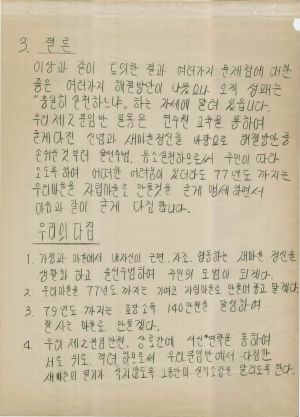 3. 결론
이상과 같이 토의한 결과 여러가지 문제점에 대한
좋은 여러가지 해결방안이 나왔으나 오직 성패는
"충실히 실천하느냐" 하는 자세에 달려 있읍니다.
우리 제2분임반 일동은 연수원 교육을 통하여
굳게다진 신념과 새마을정신을 바탕으로 해결방안중
손쉬운것 부터 솔선수범, 몸소실천하므로서 주민이 따라
오도록하며 어떠한 어려움이 있더라도 77년도 까지는
우리마을을 자립마을로 만들것을 굳게 맹세하면서
다음과 같이 굳게 다짐 합니다.
우리의 다짐
1. 가정과 마을에서 내자신이 근면, 자조, 협동하는 새마을 정신을
생활화 하고 솔선수범하여 주민의 모범이 되겠다.
2. 우리마을을 77년도 까지는 기어코 자립마을로 만들어 놓고 말겠다.
3. 79년도 까지는 호당소득 140만원을 달성하여
잘 사는 마을로 만들겠다.
4. 우리 제2분임반원, 상호간에 서신연락을 통하여
서로 위로, 격려 하므로써 우리분임반에서 다짐한
새마을의 열기가 식지않도록 그동안의 실적소감을 알리도록 한다.